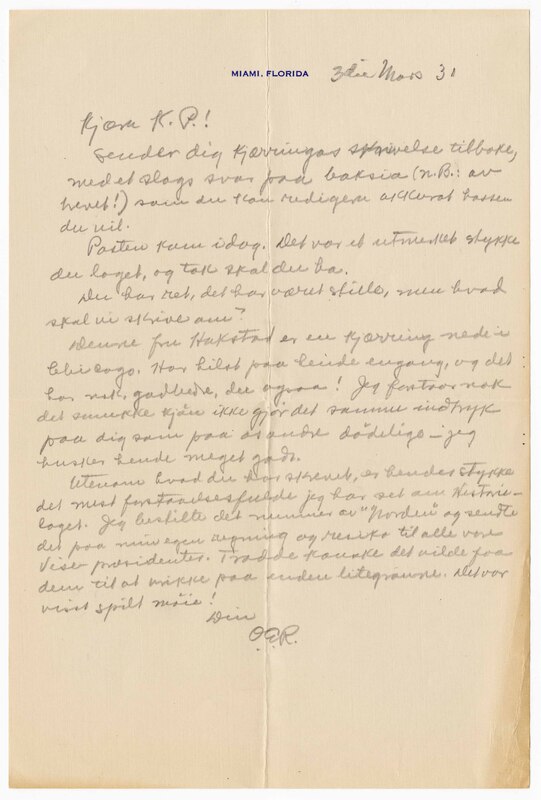 MIAMI, FLORIDA
3die Mars 31
Kjære K. P.!
Sender dig kjærringas skrivelse tilbake,
med et slags svar paa baksia (n.B.: av
brevet!) som du kan redigere akkurat hossen
du vil.
Posten kom idag. Det var et utmerket stykke
du laget, og tak skal du ha.
Du har ret, det har været stille, men hvad
skal vi skrive om?
Denne fru Hakstad er en kjærring nede i
Chicago. Har hilst paa hende engang, og det
har nok, du ogsaa! Jeg forstaar nok
det smukke kjön ikke gjør det samme indtryk
paa dig som paa os andre dödelige – jeg
husker hende meget godt.
Utenom hvad du har skrevet, er hendes stykke
det mest forstaaelsesfulde jeg har set om Historie-
laget. Jeg bestilte det nummer av "Norden" og sendte
det paa min egen regning og resiko til alle vore
Vise-presidenter. Trodde kanske det vilde faa
dem til at vrikke paa enden litegranne. Det var
visst spilt möie!
Din
O.E.R.